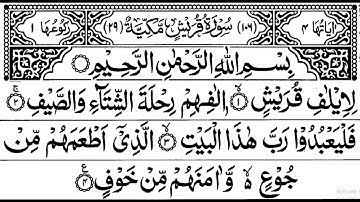 اٰیَاتُهَا ۴ (۱۰۶) سُوْرَةُ قُرَيْشٍ مَكِّيَّةٌ (۲۹) رُكُوْعُهَا ۱
بِسْمِ اللّٰهِ الرَّحْمٰنِ الرَّحِيْمِ
لِاِيْلٰفِ قُرَيْشٍ ۙ‏﴿۱﴾ اٖلٰفِهِمْ رِحْلَةَ الشِّتَآءِ وَالصَّيْفِ ۚ‏﴿۲﴾
فَلْيَعْبُدُوْا رَبَّ هٰذَا الْبَيْتِ ۙ‏﴿۳﴾ الَّذِيْۤ اَطْعَمَهُمْ مِّنْ
جُوْعٍ ۙ۬ وَّاٰمَنَهُمْ مِّنْ خَوْفٍ ‏﴿۴﴾